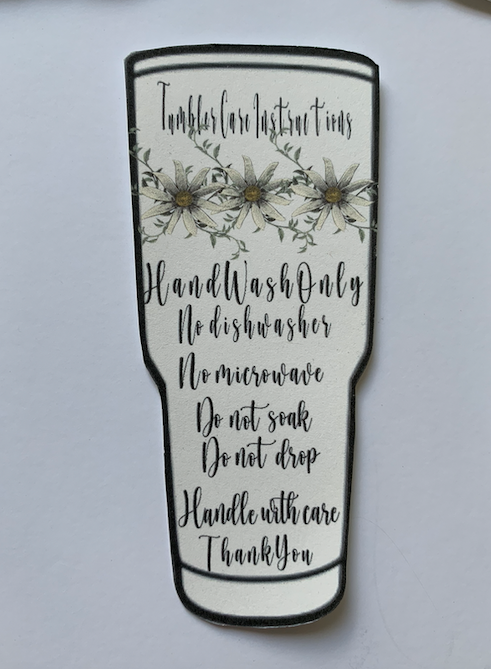 Tumbler Care Instructions
Hand Wash Only
No dishwasher
No microwave
Do not soak
Do not drop
Handle with care
Thank You